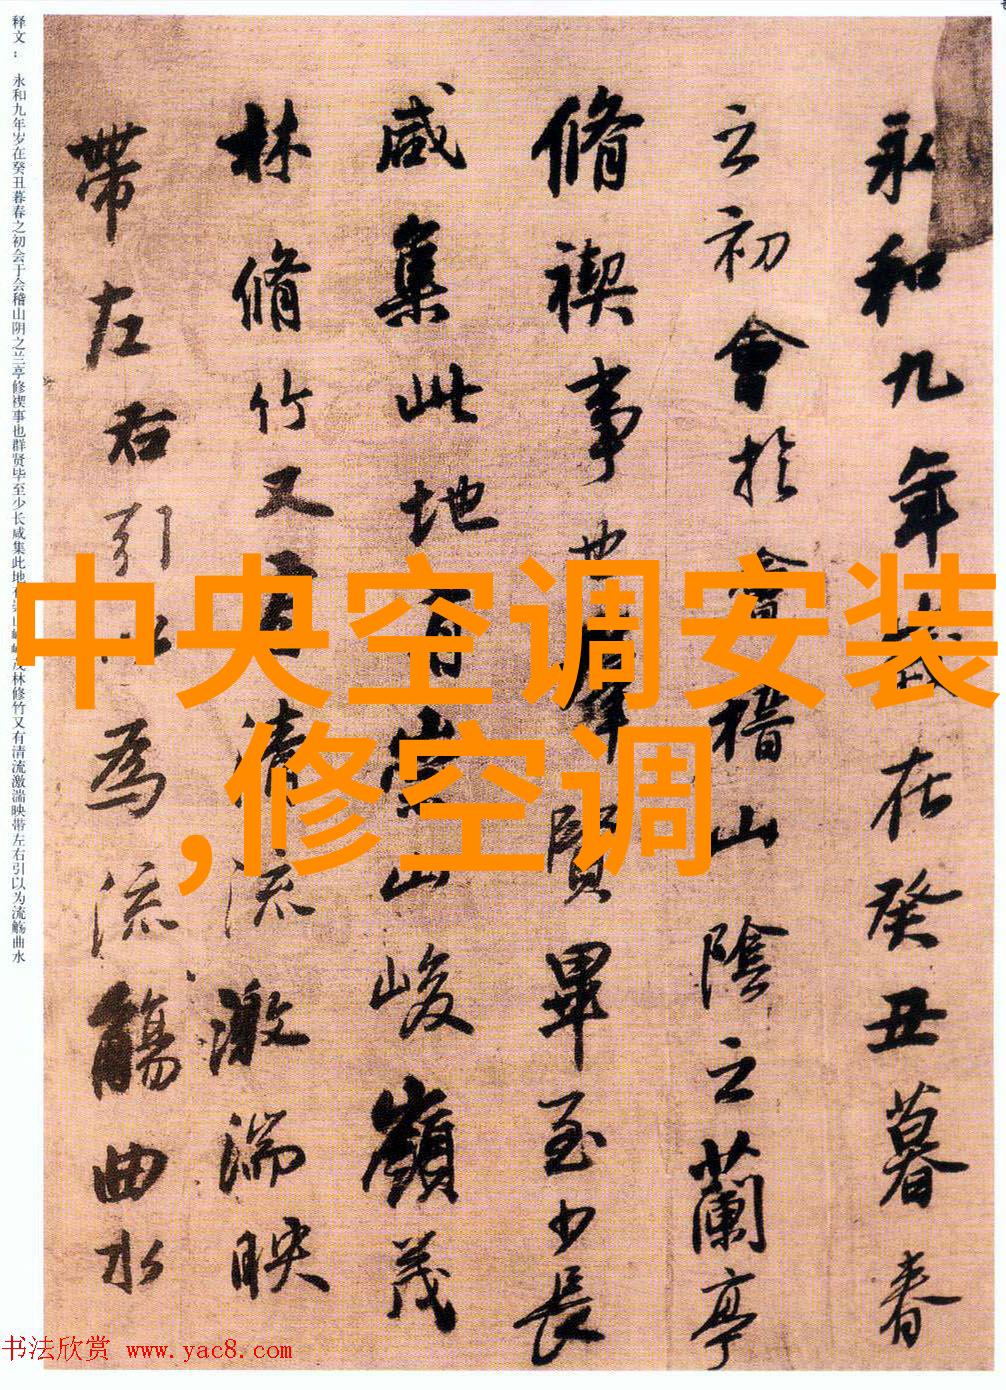 永和九年歲在癸丑暮春
之初會於會稽山陰之蘭亭
脩禊事也羣賢畢至少長
咸集此地有崇山峻嶺茂
林脩竹又有清流激湍映
帶左右引以為流觴曲水
释文：永和九年岁在癸丑暮春之初会于会稽山阴之兰亭修禊事也群贤毕至少长咸集此地有崇山峻岭茂林修竹又有清流激湍映带左右引以为流觞曲水
中央空调安装
,修空调
书法欣赏 www.yac8.com